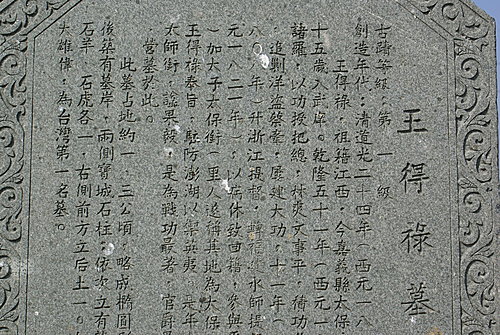 王得祿墓
古蹟等級：第一級
創造年代：清道光二十四年（西元一八
王得祿，祖籍江西，今嘉義縣太保
十五歲入武庠。乾隆五十一年（西元一
諸羅，以功授把總，林爽文事平，積功
追剿洋盜蔡牽，屢建大功，十一年（
八〇 年）升浙江提督， 水師提
元一八二一年），以病休致回籍，參與
）加太子太保銜（里人遂稱其地為太保
王得祿奉旨，駐防澎湖以禦英夷， 是年
太師銜，諡果毅，是為戰功最著，官爵
營墓於此。
此墓占地約一．三公頃，略成橢圓
後築有墓岸，兩側寶城石柱，依次立有
石羊、石虎各一，右側前方立后土一。
大雄偉，為台灣第一名墓。